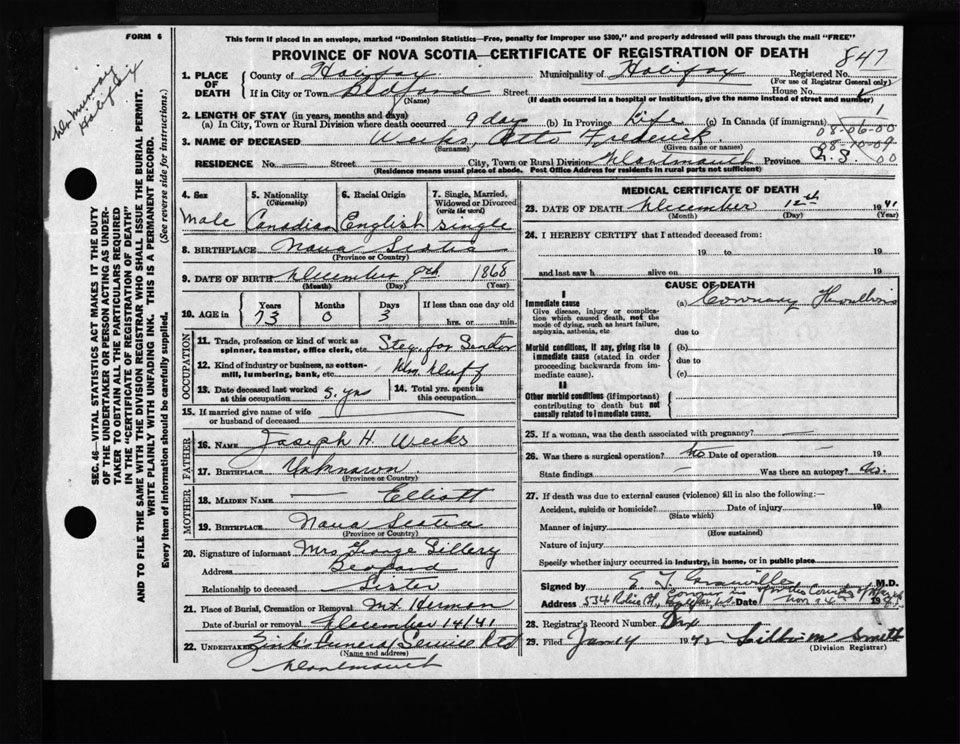 FORM 6
This form if placed in an envelope, marked "Dominion Statistics—Free, penalty for improper use $300," and properly addressed will pass through the mail "FREE"
PROVINCE OF NOVA SCOTIA—CERTIFICATE OF REGISTRATION OF DEATH
847
1. PLACE OF DEATH
County of Halifax Municipality of Halifax Registered No.
(For use of Registrar General only)
If in City or Town Bedford Street House No.
(Name) (If death occurred in a hospital or institution, give the name instead of street and number)
2. LENGTH OF STAY (in years, months and days)
(a) In City, Town or Rural Division where death occurred 9 days (b) In Province Life (c) In Canada (if immigrant)
1
08-06-00
3. NAME OF DECEASED Weeks, Otto Frederick
(Surname) (Given name or names)
08-10-09
RESIDENCE No. — Street — City, Town or Rural Division Dartmouth Province N.S.
00
(Residence means usual place of abode. Post Office Address for residents in rural parts not sufficient)
4. Sex
male
5. Nationality
(Citizenship)
Canadian
6. Racial Origin
English
7. Single, Married, Widowed or Divorced
(write the word)
single
8. BIRTHPLACE Nova Scotia
(Province or Country)
9. DATE OF BIRTH December 9th 1868
(Month) (Day) (Year)
10. AGE in
Years Months Days If less than one day old
73 0 3 hrs. or min.
OCCUPATION
11. Trade, profession or kind of work as spinner, teamster, office clerk, etc. for
12. Kind of industry or business, as cotton-mill, lumbering, bank, etc. Wm. Duff
13. Date deceased last worked at this occupation 5 yrs
14. Total yrs. spent in this occupation
15. If married give name of wife or husband of deceased
FATHER
16. NAME Joseph H. Weeks
17. BIRTHPLACE Unknown.
(Province or Country)
MOTHER
18. MAIDEN NAME — Elliott
19. BIRTHPLACE Nova Scotia
(Province or Country)
20. Signature of informant Mrs George Sillery
Address Bedford
Relationship to deceased Sister
21. Place of Burial, Cremation or Removal Mt. Hermon
Date of burial or removal December 14/41
22. UNDERTAKER Zinks Funeral Service Ltd
(Name and address)
Dartmouth
MEDICAL CERTIFICATE OF DEATH
23. DATE OF DEATH December 12th 1941
(Month) (Day) (Year)
24. I HEREBY CERTIFY that I attended deceased from:
19 to 19
and last saw h alive on 19
CAUSE OF DEATH
I
Immediate cause
Give disease, injury or complication which caused death, not the mode of dying, such as heart failure, asphyxia, asthenia, etc
(a) Coronary Thrombosis
due to
Morbid conditions, if any, giving rise to immediate cause (stated in order proceeding backwards from immediate cause).
(b)
due to
(c)
II
Other morbid conditions (if important) contributing to death but not causally related to immediate cause.
25. If a woman, was the death associated with pregnancy? —
26. Was there a surgical operation? No Date of operation — 19
State findings — Was there an autopsy? No.
27. If death was due to external causes (violence) fill in also the following:—
Accident, suicide or homicide? Date of injury 19
(State which)
Manner of injury
(How sustained)
Nature of injury
Specify whether injury occurred in industry, in home, or in public place
Signed by E. T. Granville M.D.
Address Date 19
28. Registrar's Record Number
29. Filed Jany 4 1942 Smith
(Division Registrar)
SEC. 46—VITAL STATISTICS ACT MAKES IT THE DUTY OF THE UNDERTAKER OR PERSON ACTING AS UNDERTAKER TO OBTAIN ALL THE PARTICULARS REQUIRED IN THE "CERTIFICATE OF REGISTRATION OF DEATH" AND TO FILE THE SAME WITH THE DIVISION REGISTRAR WHO SHALL ISSUE THE BURIAL PERMIT.
WRITE PLAINLY WITH UNFADING INK. THIS IS A PERMANENT RECORD.
Every item of information should be carefully supplied. (See reverse side for instructions.)
Halifax